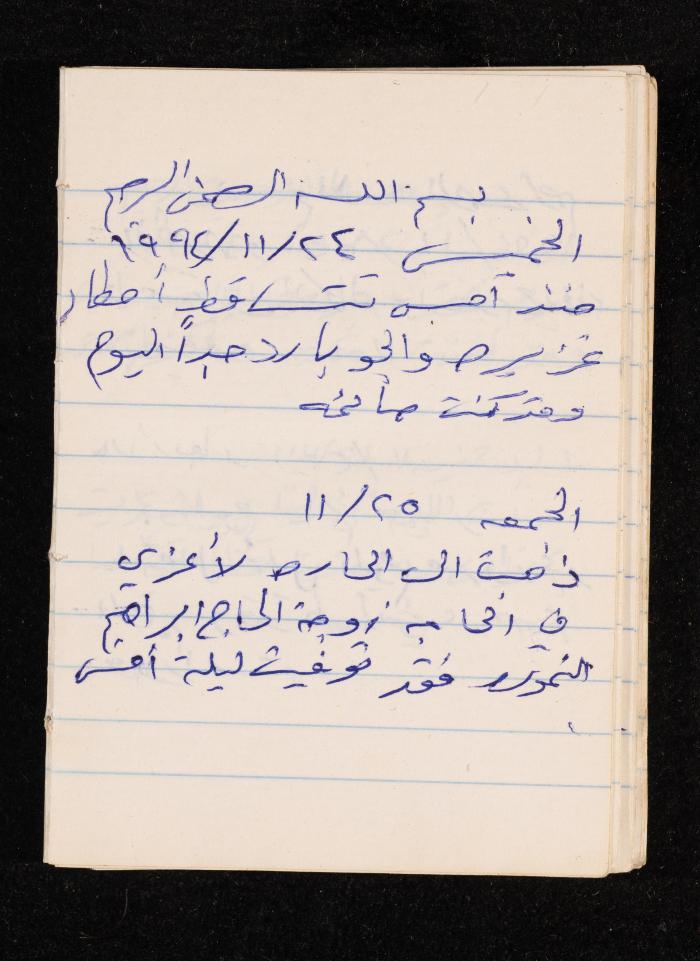 بسم الله الرحمن الرحيم
الخميس ١٩٩٤/١١/٢٤
منذ أمس تتساقط أمطار
غزيره والجو بارد جداً اليوم
وقد كنت صائمه
الجمعه ١١/٢٥
ذهبت الى الحاره لأعزي
في الحاجه زوجة الحاج ابراهيم
فقد توفيت ليلة أمس